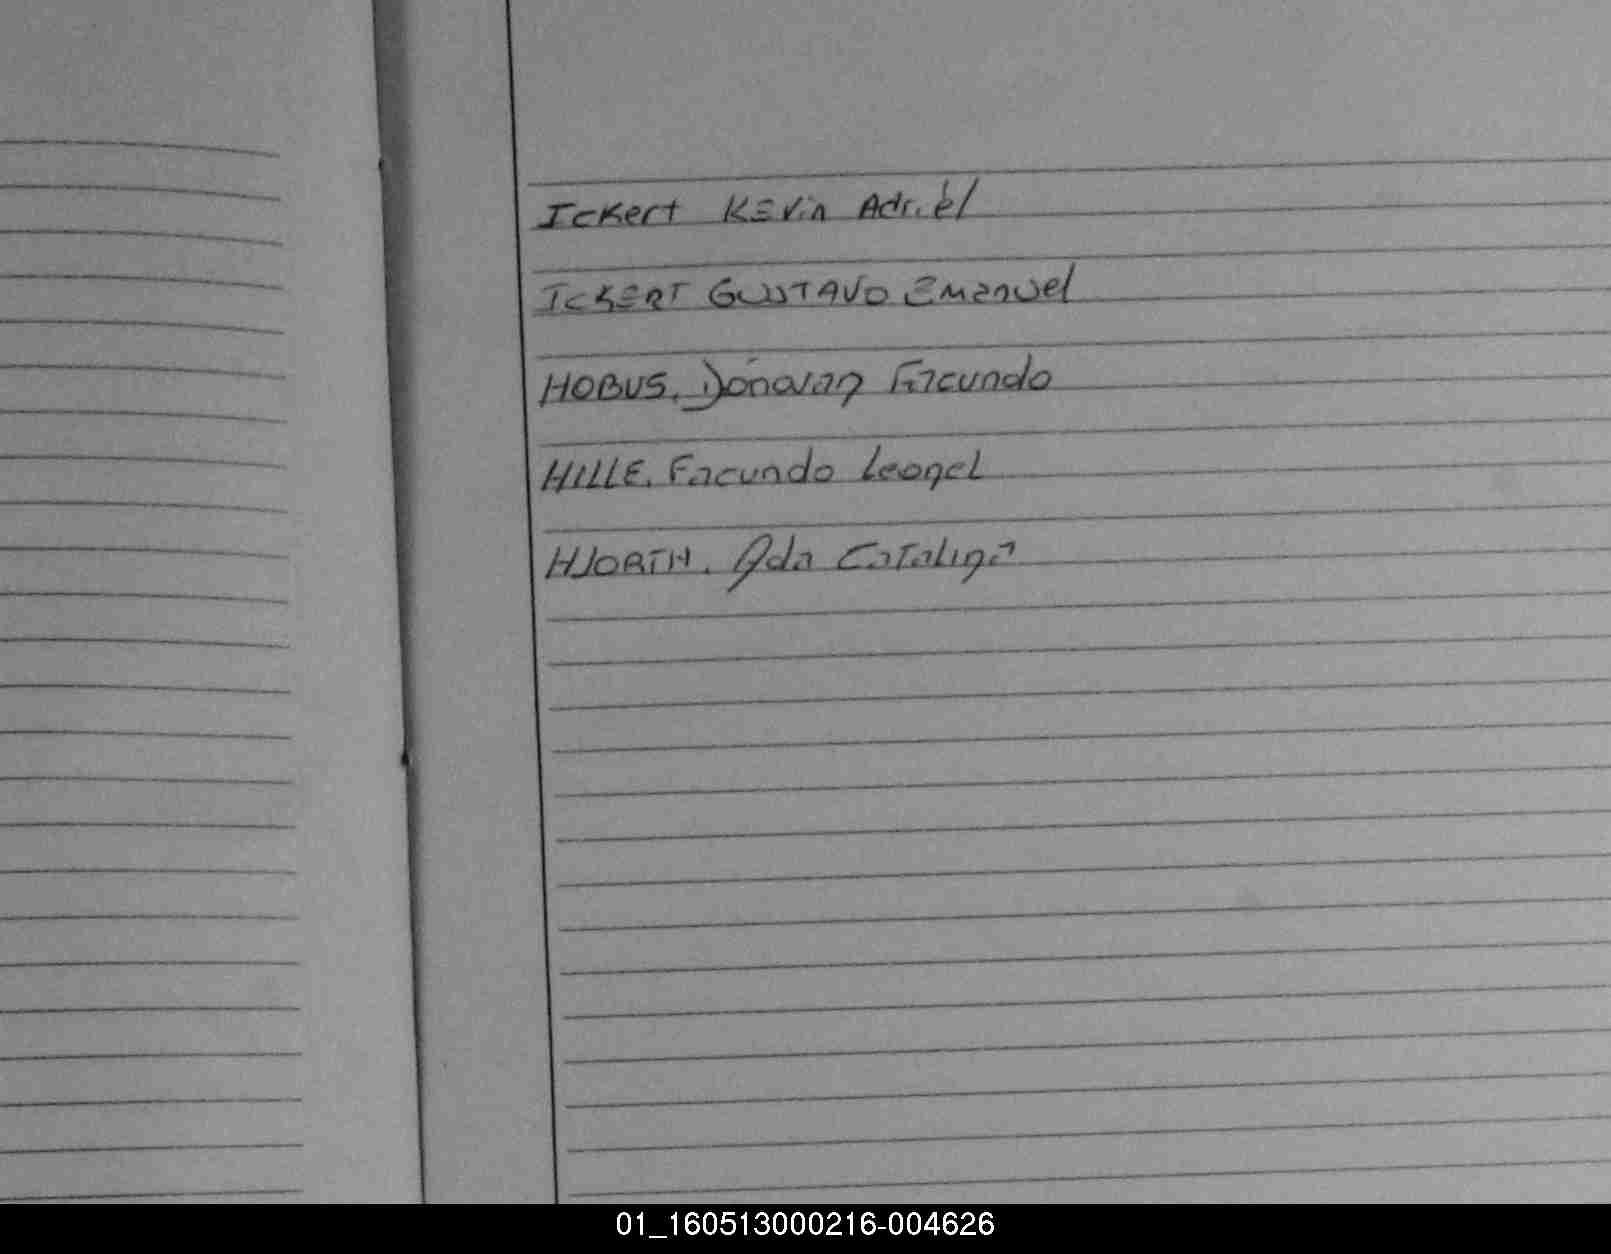 Ickert Kevin Adriel
ICKERT GUSTAVO Emanuel
HOBUS, Dónovan Facundo
HILLE, Facundo Leonel
HJORTH, Ada Catalina
01_160513000216-004626